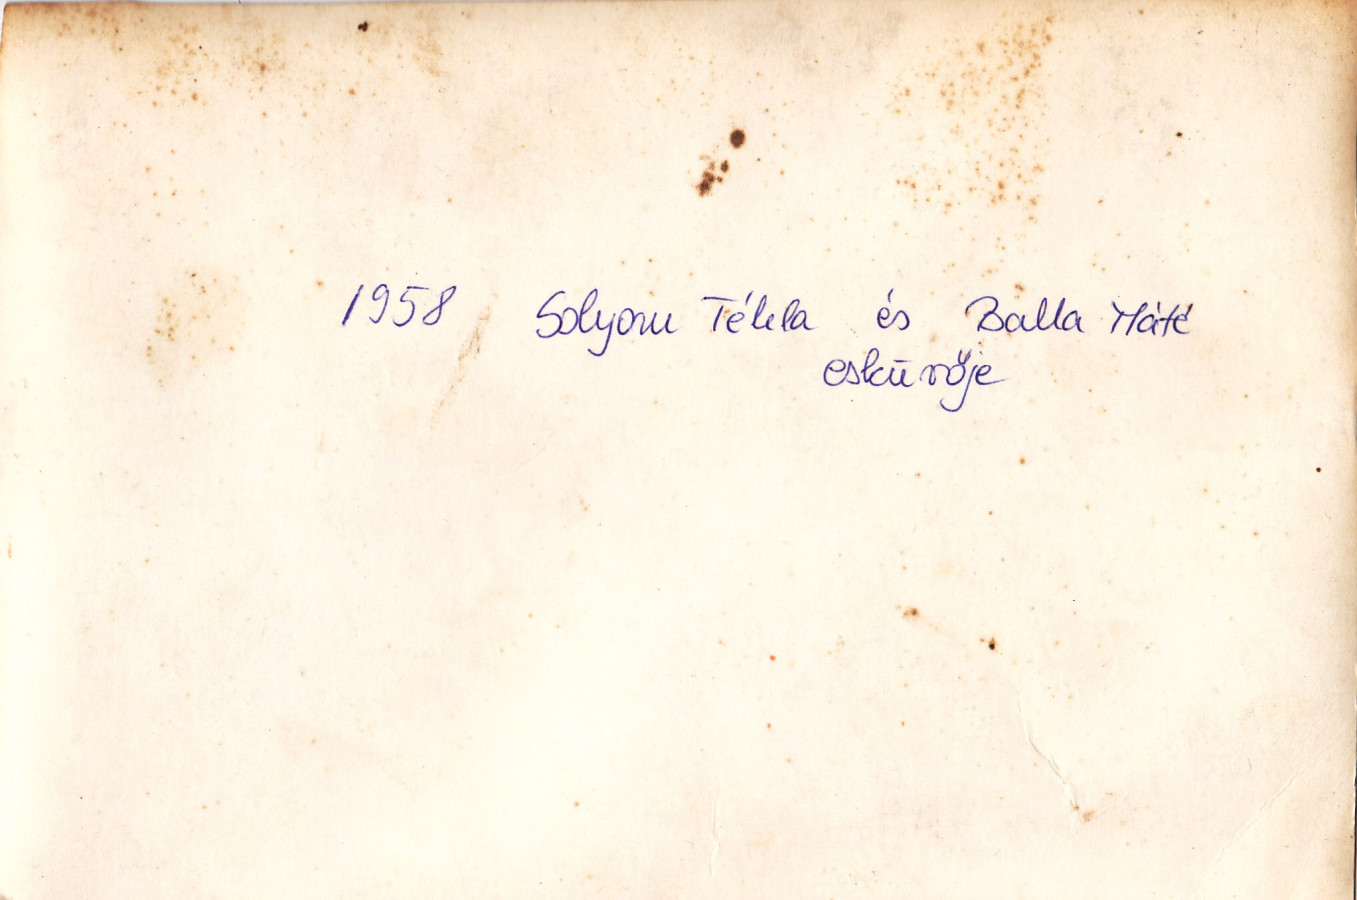 1958 Solyom Tékla és Balla Máté
esküvője